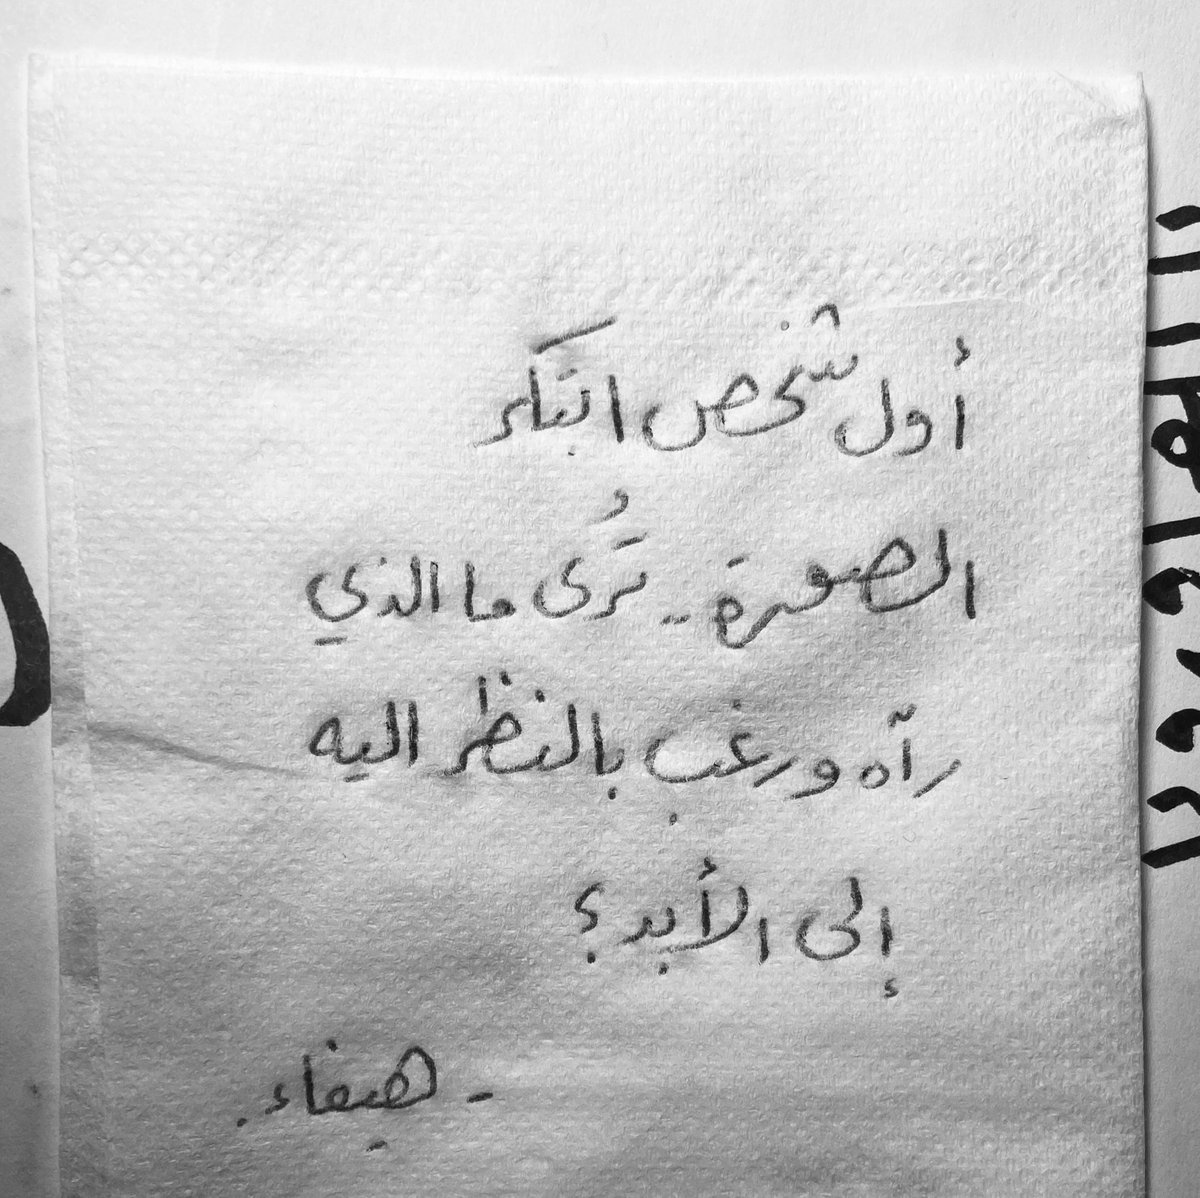 أول شخص ابتكر
الصورة .. تُرى ما الذي
رآه ورغب بالنظر اليه
إلى الأبد ؟
- هيفاء .